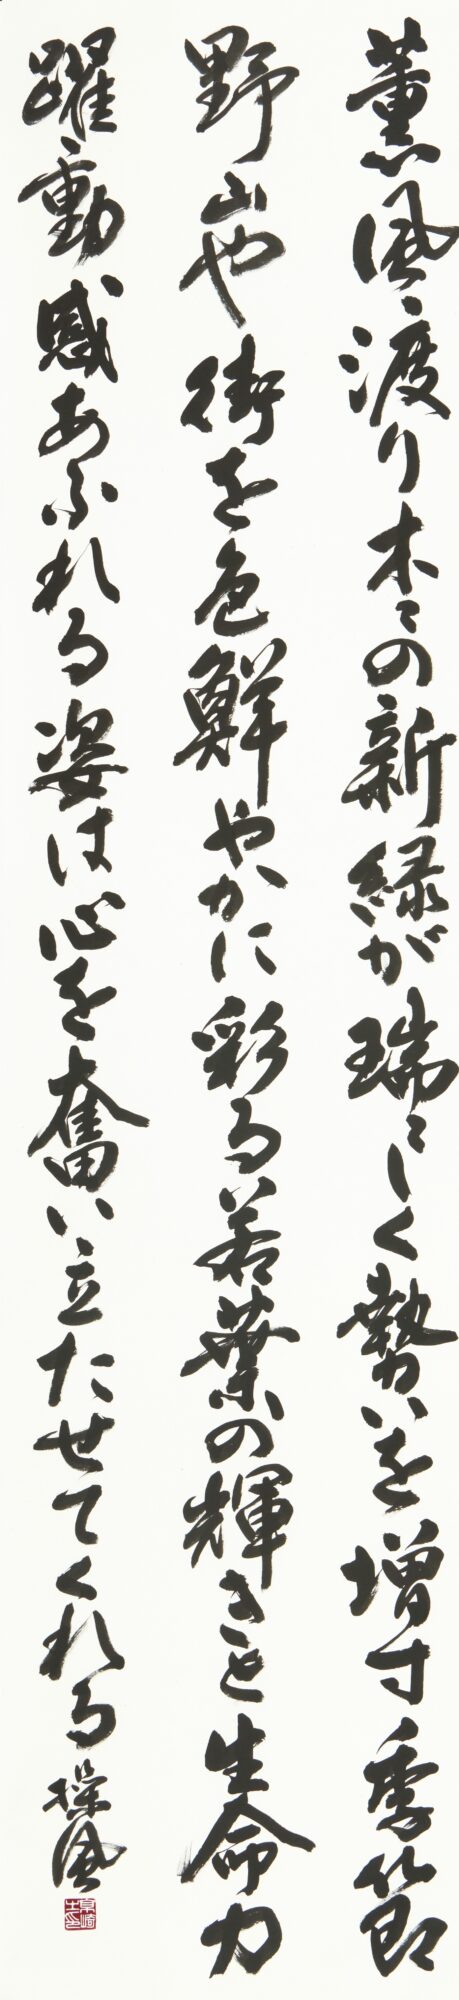 薫風渡り木々の新緑が瑞々しく勢いを増す季節
野山や街を色鮮やかに彩る若葉の輝きと生命力
躍動感あふれる姿は心を奮い立たせてくれる 操風